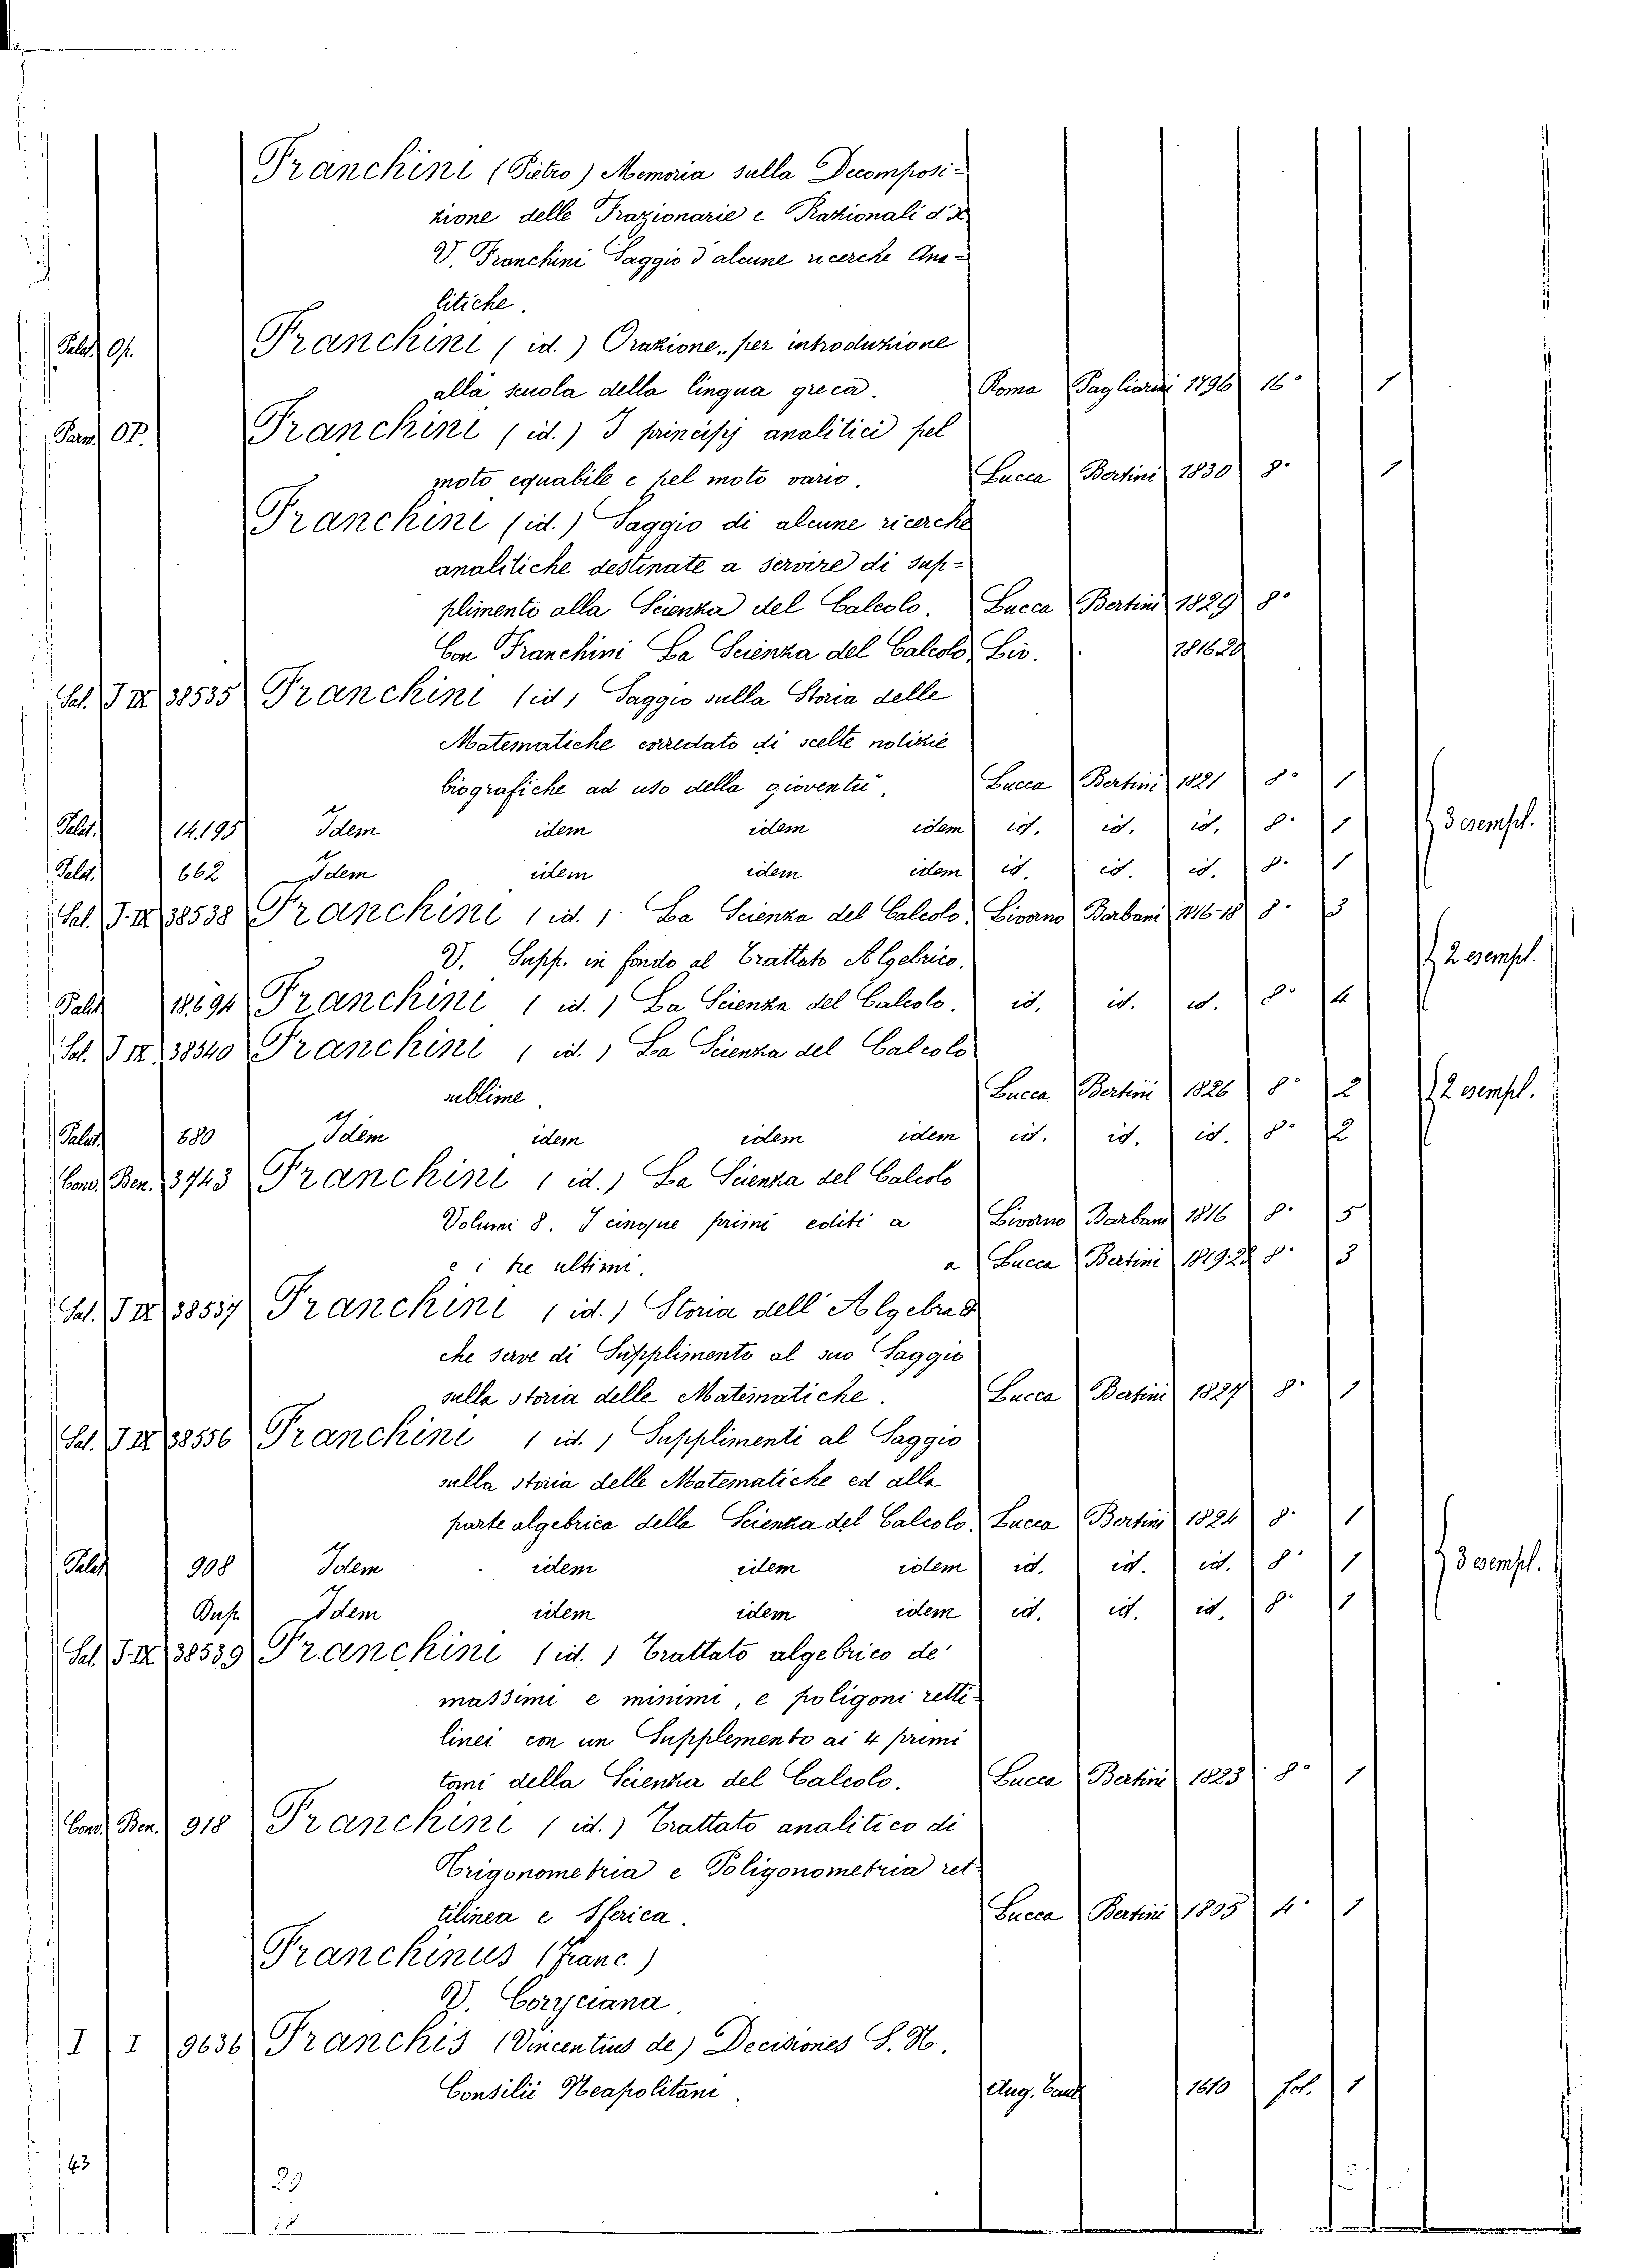 Franchini (Pietro) Memoria sulla Decomposi-
zione delle Frazionarie e Razionali d'x
V. Franchini Saggio d'alcune ricerche Ana-
litiche.
Palat. Op. Franchini (id.) Orazione per introduzione
alla scuola della lingua greca. Roma Pagliarini 1796 16° 1
Parm. OP. Franchini (id.) I principj analitici pel
moto equabile e pel moto vario. Lucca Bertini 1830 8° 1
Franchini (id.) Saggio di alcune ricerche
analitiche destinate a servire di sup-
plimento alla Scienza del Calcolo. Lucca Bertini 1829 8°
Con Franchini La Scienza del Calcolo Liv.
Sal. J. IX 38535 Franchini (id.) Saggio sulla Storia delle
Matematiche corredato di scelte notizie
biografiche ad uso della gioventù. Lucca Bertini 1821 8° 1
Palat. 14.195 Idem idem idem idem id. id. id. 8° 1 3 esempl.
Palat. 662 Idem idem idem idem id. id. id. 8° 1
Sal. J. IX 38538 Franchini (id.) La Scienza del Calcolo. Livorno Barbani 1816-18 8° 3
V. Supp. in fondo al Trattato Algebrico. 2 esempl.
Palat. 18.694 Franchini (id.) La Scienza del Calcolo. id. id. id. 8° 4
Sal. J. IX. 38540 Franchini (id.) La Scienza del Calcolo
sublime. Lucca Bertini 1826 8° 2 2 esempl.
Palat. 680 Idem idem idem idem id. id. id. 8° 2
Cons. Ben. 3743 Franchini (id.) La Scienza del Calcolo
Volumi 8. I cinque primi editi a Livorno Barbani 1816 8° 5
e i tre ultimi. a Lucca Bertini 8° 3
Sal. J. IX 38537 Franchini (id.) Storia dell'Algebra
che serve di Supplimento al suo Saggio
sulla storia delle Matematiche. Lucca Bertini 1827 8° 1
Sal. J. IX 38556 Franchini (id.) Supplimenti al Saggio
sulla storia delle Matematiche ed alla
parte algebrica della Scienza del Calcolo. Lucca Bertini 1824 8° 1
Palat. 908 Idem idem idem idem id. id. id. 8° 1 3 esempl.
Dup. Idem idem idem idem id. id. id. 8° 1
Sal. J. IX 38539 Franchini (id.) Trattato algebrico de'
massimi e minimi, e poligoni retti-
linei con un Supplemento ai 4 primi
tomi della Scienza del Calcolo. Lucca Bertini 1823 8° 1
Cons. Ben. 918 Franchini (id.) Trattato analitico di
Trigonometria e Poligonometria ret-
tilinea e Sferica. Lucca Bertini 1835 4° 1
Franchinus (Franc.)
V. Coryciana.
I I 9636 Franchis (Vincentius de) Decisiones S. N.
Consilii Neapolitani. Aug. Taur. 1610 fol. 1
43
29